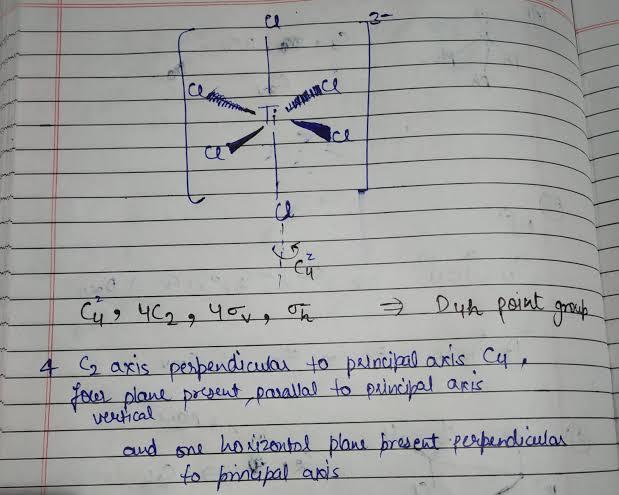 Cl
3-
Cl
Cl
Ti
Cl
Cl
Cl
C₄²
C₄², 4C₂, 4σᵥ, σₕ ⇒ D₄h point group
4 C₂ axis perpendicular to principal axis C₄,
four plane present, parallal to principal axis
vertical
and one horizontal plane present perpendicular
to principal axis